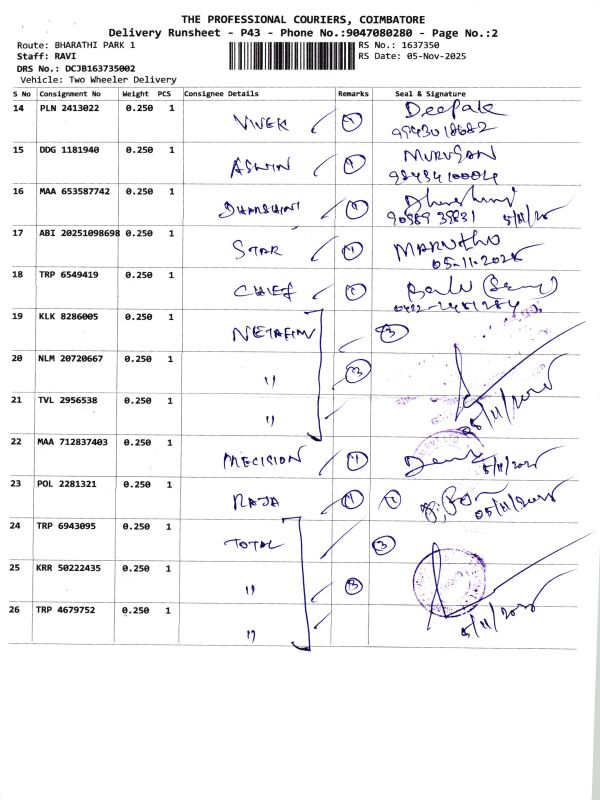 THE PROFESSIONAL COURIERS, COIMBATORE
Delivery Runsheet - P43 - Phone No.:9047080280 - Page No.:2
Route: BHARATHI PARK 1 RS No.: 1637350
Staff: RAVI RS Date: 05-Nov-2025
DRS No.: DCJB163735002
Vehicle: Two Wheeler Delivery
S No Consignment No Weight PCS Consignee Details Remarks Seal & Signature
14 PLN 2413022 0.250 1 VIVEK 1 Deepak
15 DDG 1181940 0.250 1 ASWIN 1 MURUGAN
16 MAA 653587742 0.250 1 DHARSHINI 1
17 ABI 20251098698 0.250 1 STAR 1
05-11-2025
18 TRP 6549419 0.250 1 CHIEF 1
19 KLK 8286005 0.250 1 NETAFIM 3
20 NLM 20720667 0.250 1 " 3
21 TVL 2956538 0.250 1 "
5/11/2025
22 MAA 712837403 0.250 1 PRECISION 1 5/11/2025
23 POL 2281321 0.250 1 RAJA 1 1 05/11/2025
24 TRP 6943095 0.250 1 TOTAL 3
25 KRR 50222435 0.250 1 " 3
26 TRP 4679752 0.250 1 " 5/11/2025